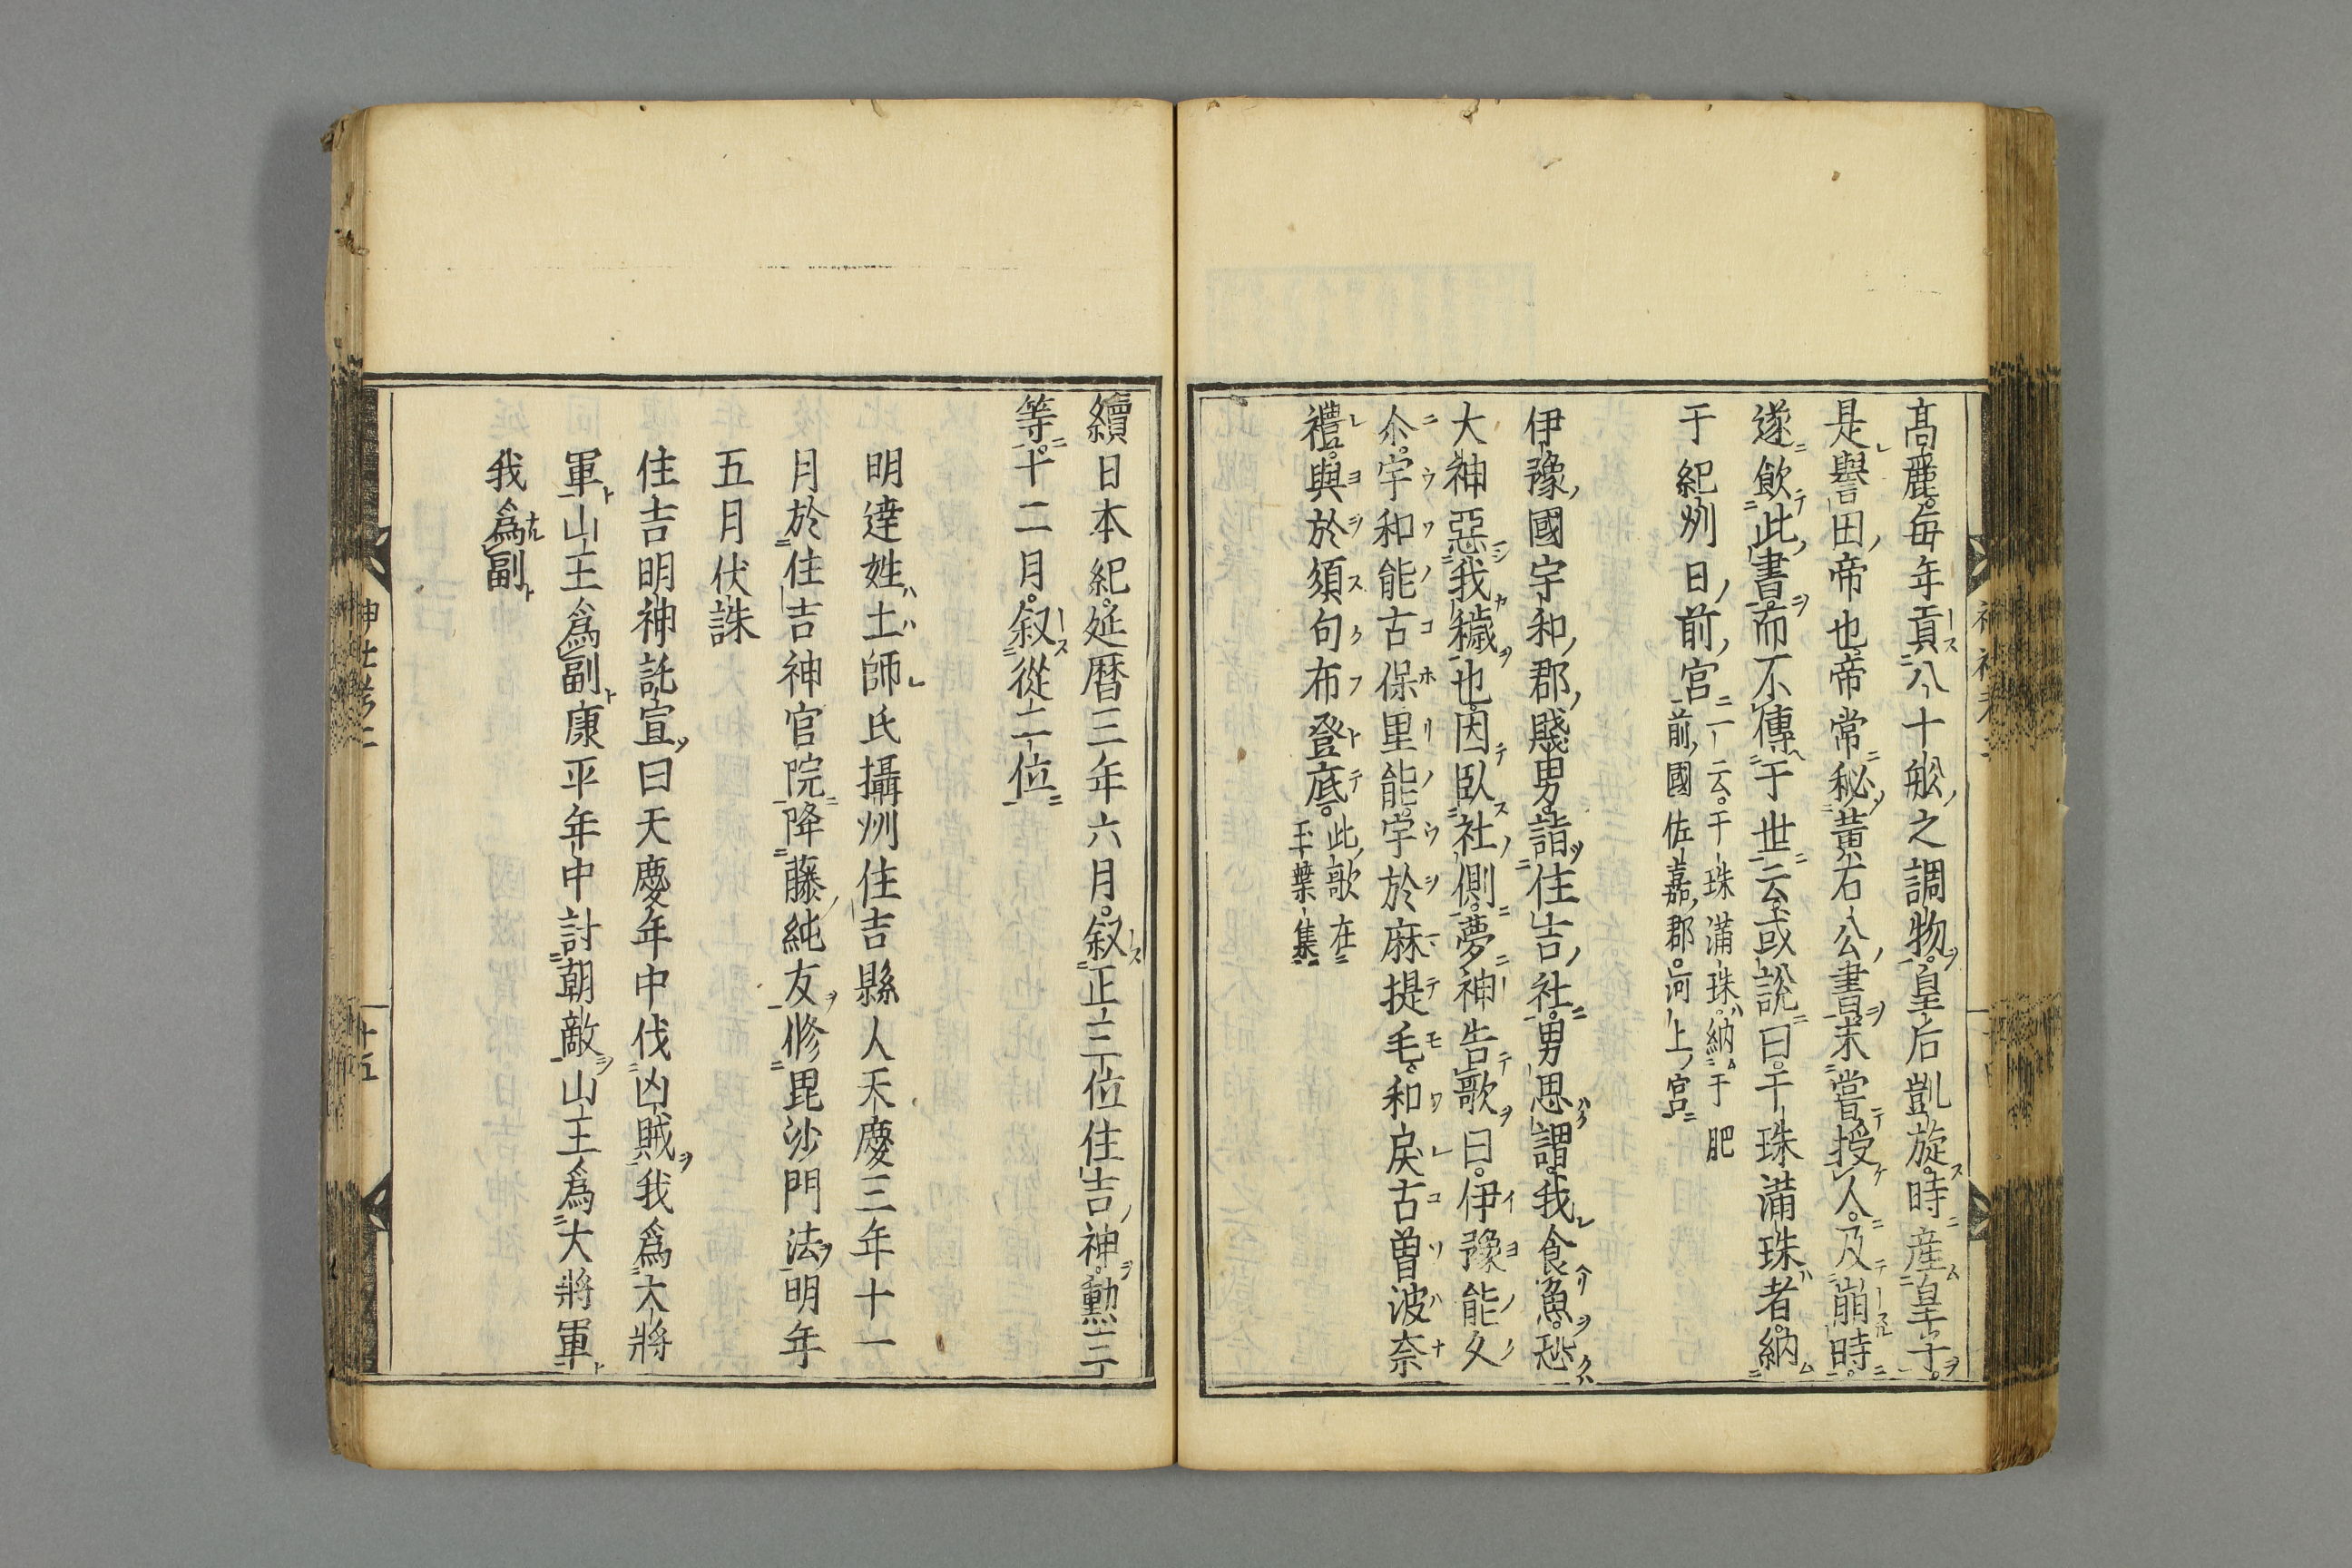 高麗。每年貢八十舩之調物。皇后凱旋。時產皇子。
是譽田帝也帝常秘黃石公書。未嘗授人。及崩時。
遂飲此書。而不傳于世云。或說曰。干珠滿珠者。納
于紀刕日前宮
一云。干珠滿珠。納于肥
前國佐嘉郡。河上宮
伊豫國宇和郡賤男。詣住吉社。男思謂。我食魚。愁
大神惡我穢也。因臥社側。夢神告歌曰。伊豫能久
尒。宇和能古保里能。宇於麻提毛。和戾古曽波奈
禮。與於須句布登底。
此歌在
玉葉集
續日本紀。延曆三年六月。叙正三位住吉神。勳三
等。十二月。叙從二位
明達姓土師氏攝刕住吉縣人天慶三年十一
月於住吉神官院降藤純友修毘沙門法明年
五月伏誅
住吉明神託宣曰天慶年中伐凶賊我為大將
軍山王為副康平年中討朝敵山王為大將軍
我為副
神社考二
十五